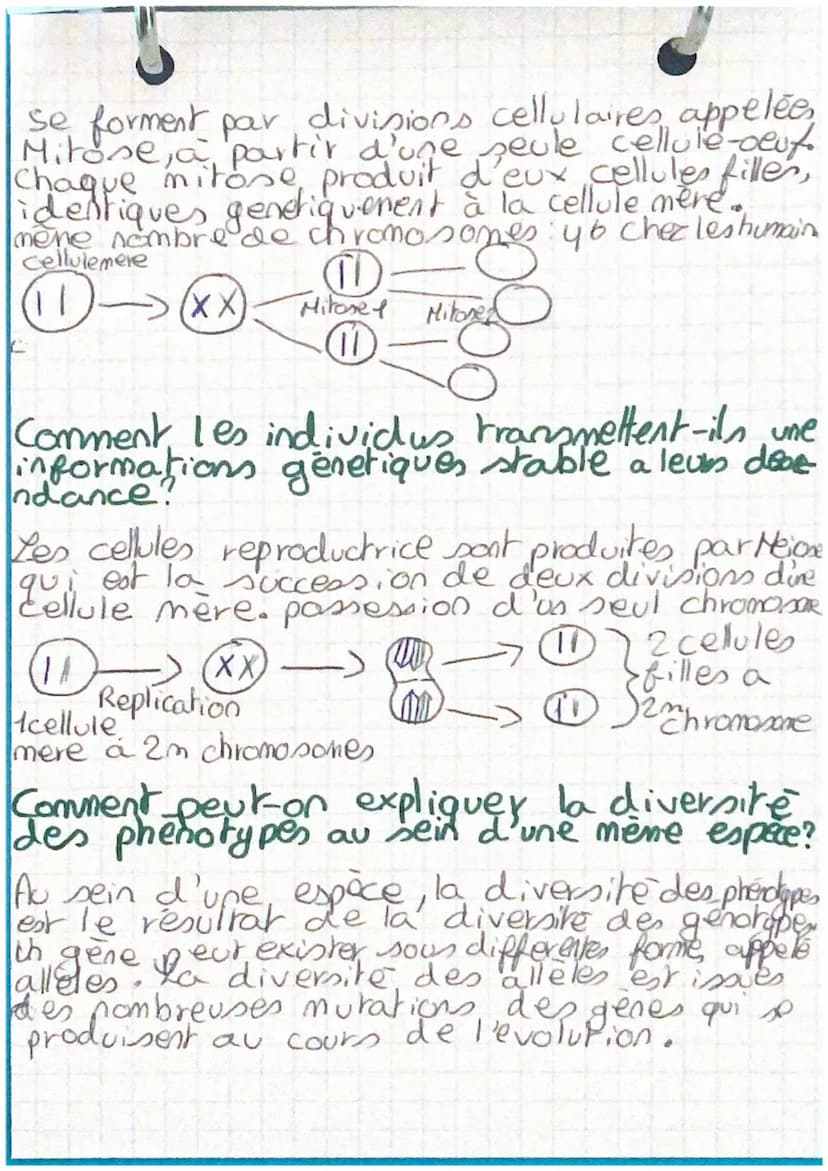 se forment par divisions cellulaires appelées
Mitose, à partir d'une seule cellule-oeuf.
Chaque mitose produit d'eux cellules filles,
identiques genetiquement à la cellule mère.
mène nombre de chromosomes : 46 chez les humain
cellule mere
Mitose 1 Mitose 2
Comment les individus transmettent-ils une
informations génetiques stable a leurs dece
ndance?
Les cellules reproductrice sont produites par Meiose
qui est la succession de deux divisions d'une
cellule mère. possession d'un seul chromosome
2 celules
filles a
2n
chromosome
Replication
1 cellule
mere à 2n chromosomes
Comment peut-on expliquer la diversité
des phénotypes au sein d'une même espèce?
Au sein d'une espèce, la diversité des phénotypes
est le résultat de la diversité des génotypes.
Un gène peut exister sous differentes forme, appelé
allèles. La diversité des allèles est issues
des nombreuses mutations des gènes qui se
produisent au cours de l'evolution.